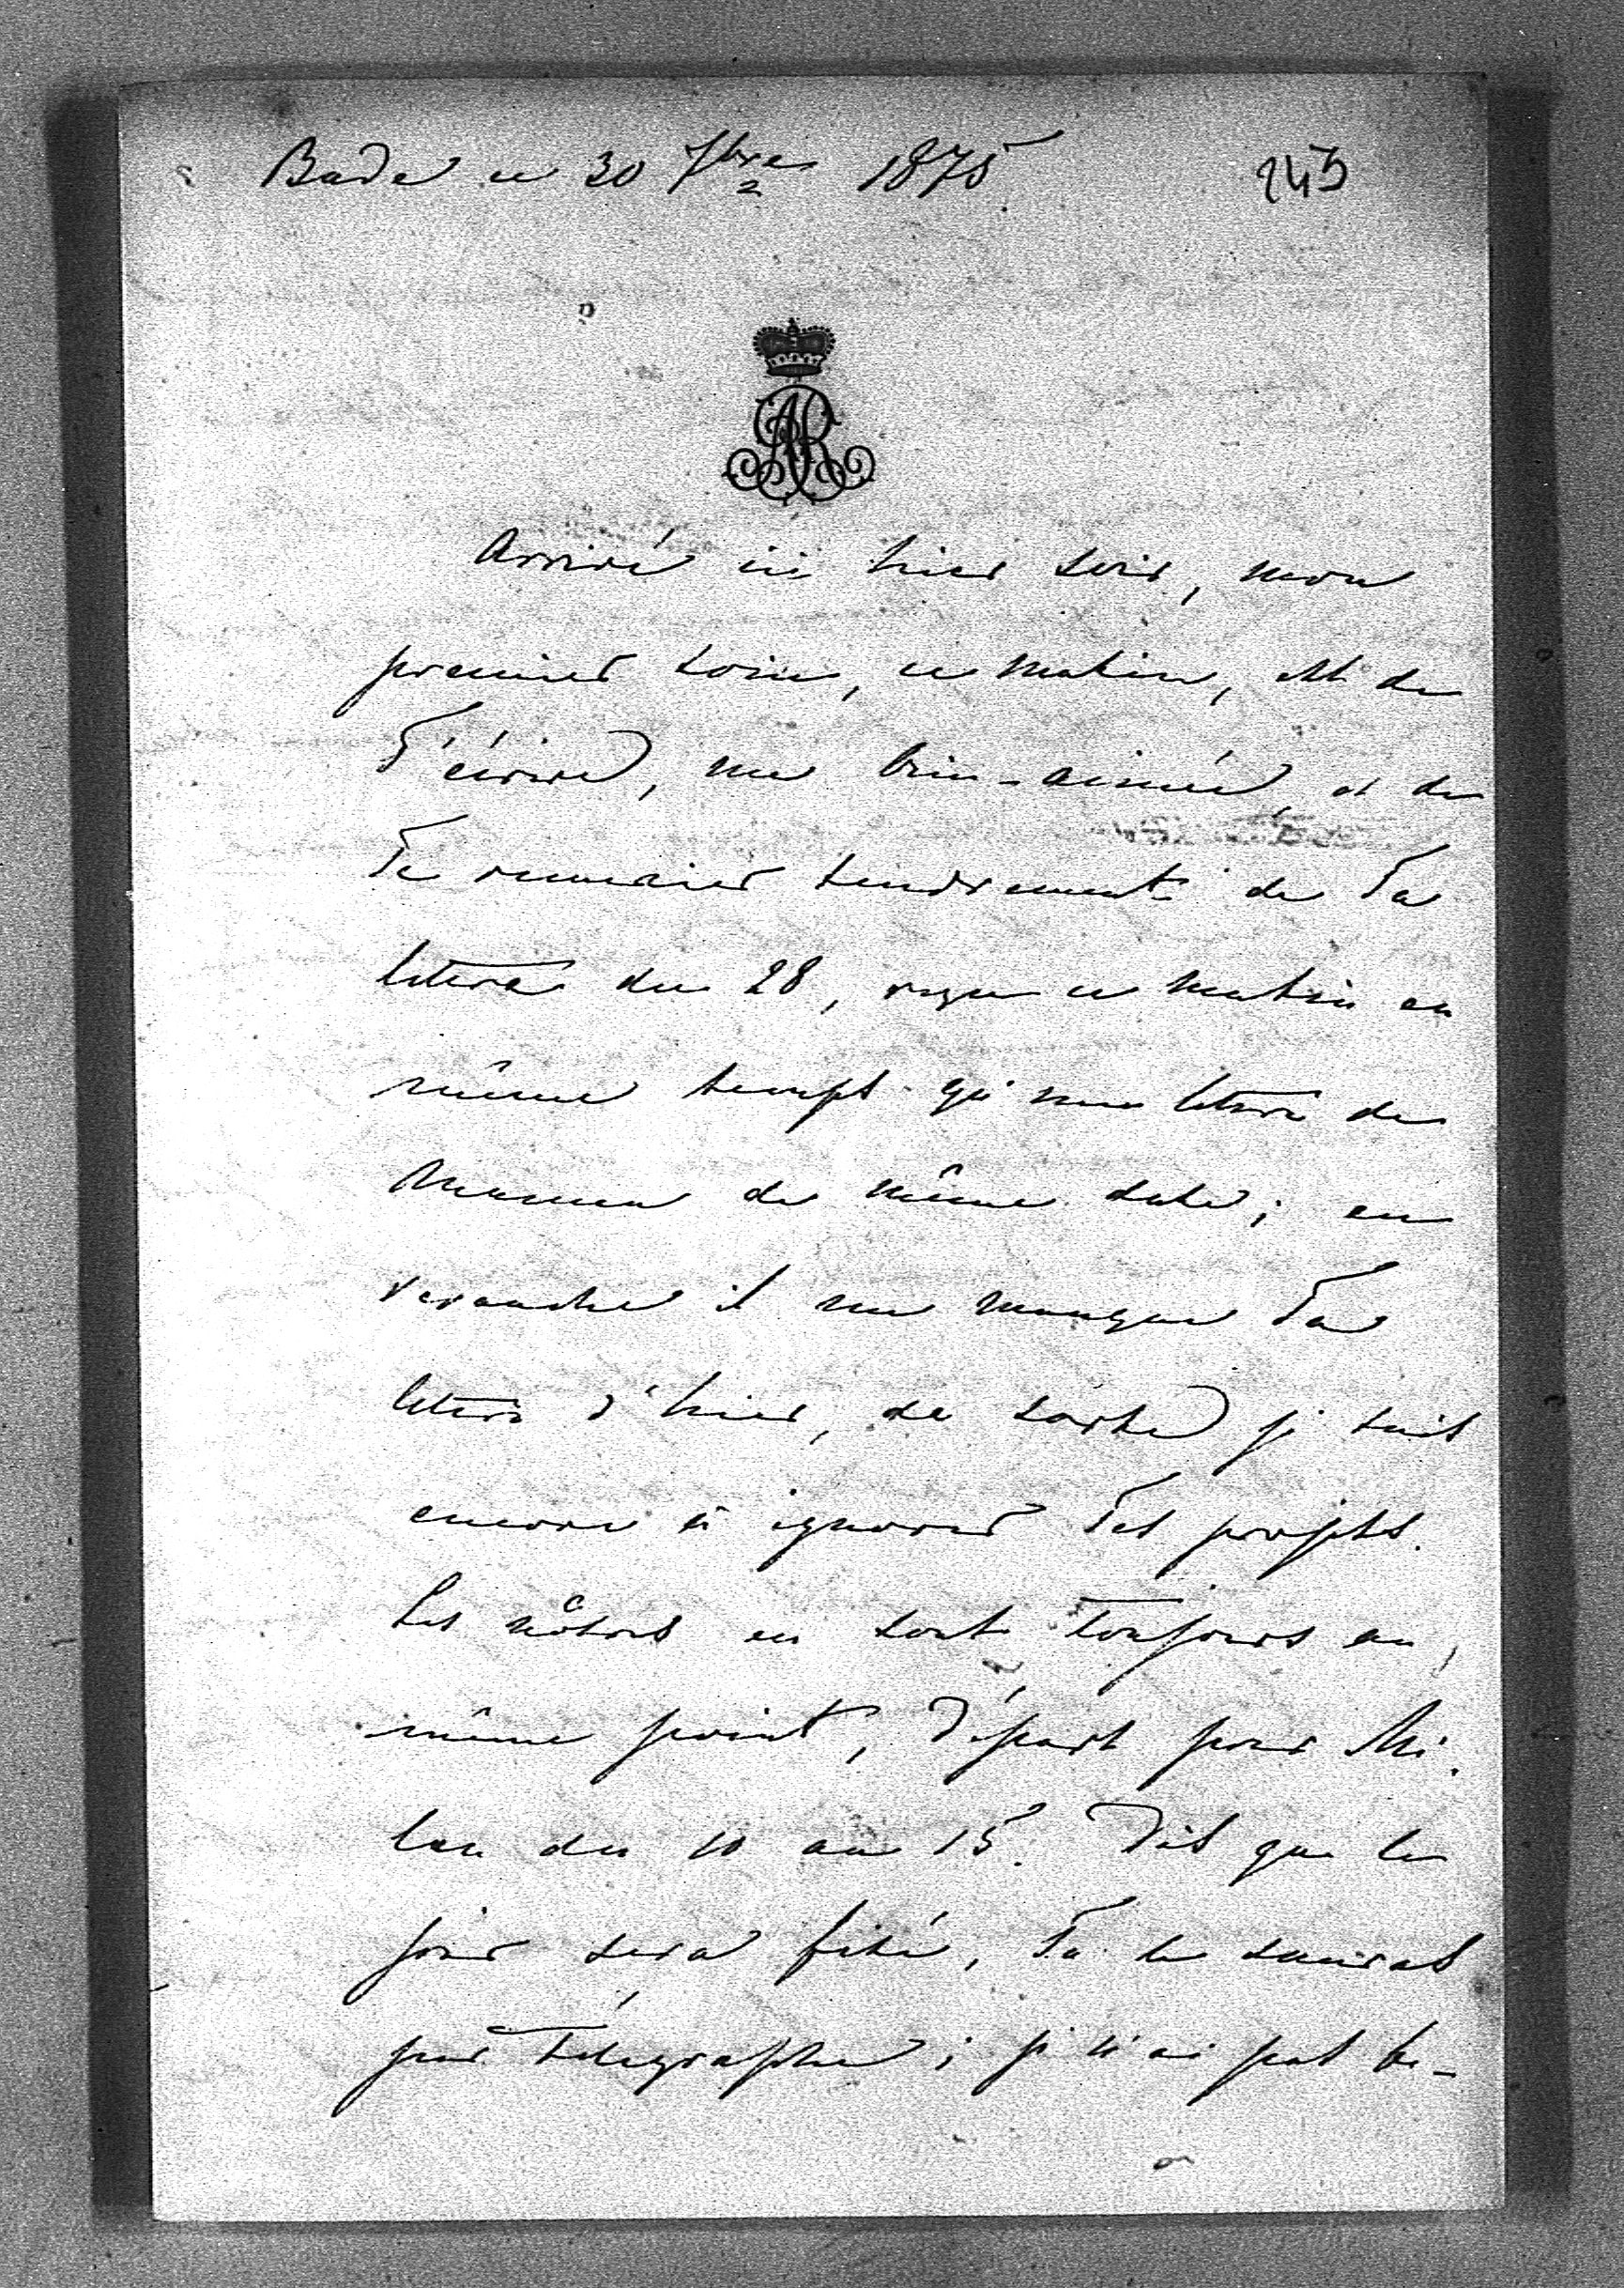 Bade ce 30 7bre 1875. 245
AR
Arrivé ici hier soir, mon
premier soin, ce matin, est de
T'écrire, ma bien-aimée, et de
Te remercier tendrement de Ta
lettre du 28, reçue ce matin en
même temps qu'une lettre de
Maman de même date; en
revanche il me manque Ta
lettre d'hier, de sorte je suis
encore à ignorer Tes projets.
Les nôtres en sont toujours au
même point, départ pour Mi-
lan du 10 au 15. Dès que le
jour sera fixé, Tu le sauras
par télégraphe; je n'ai pas be-